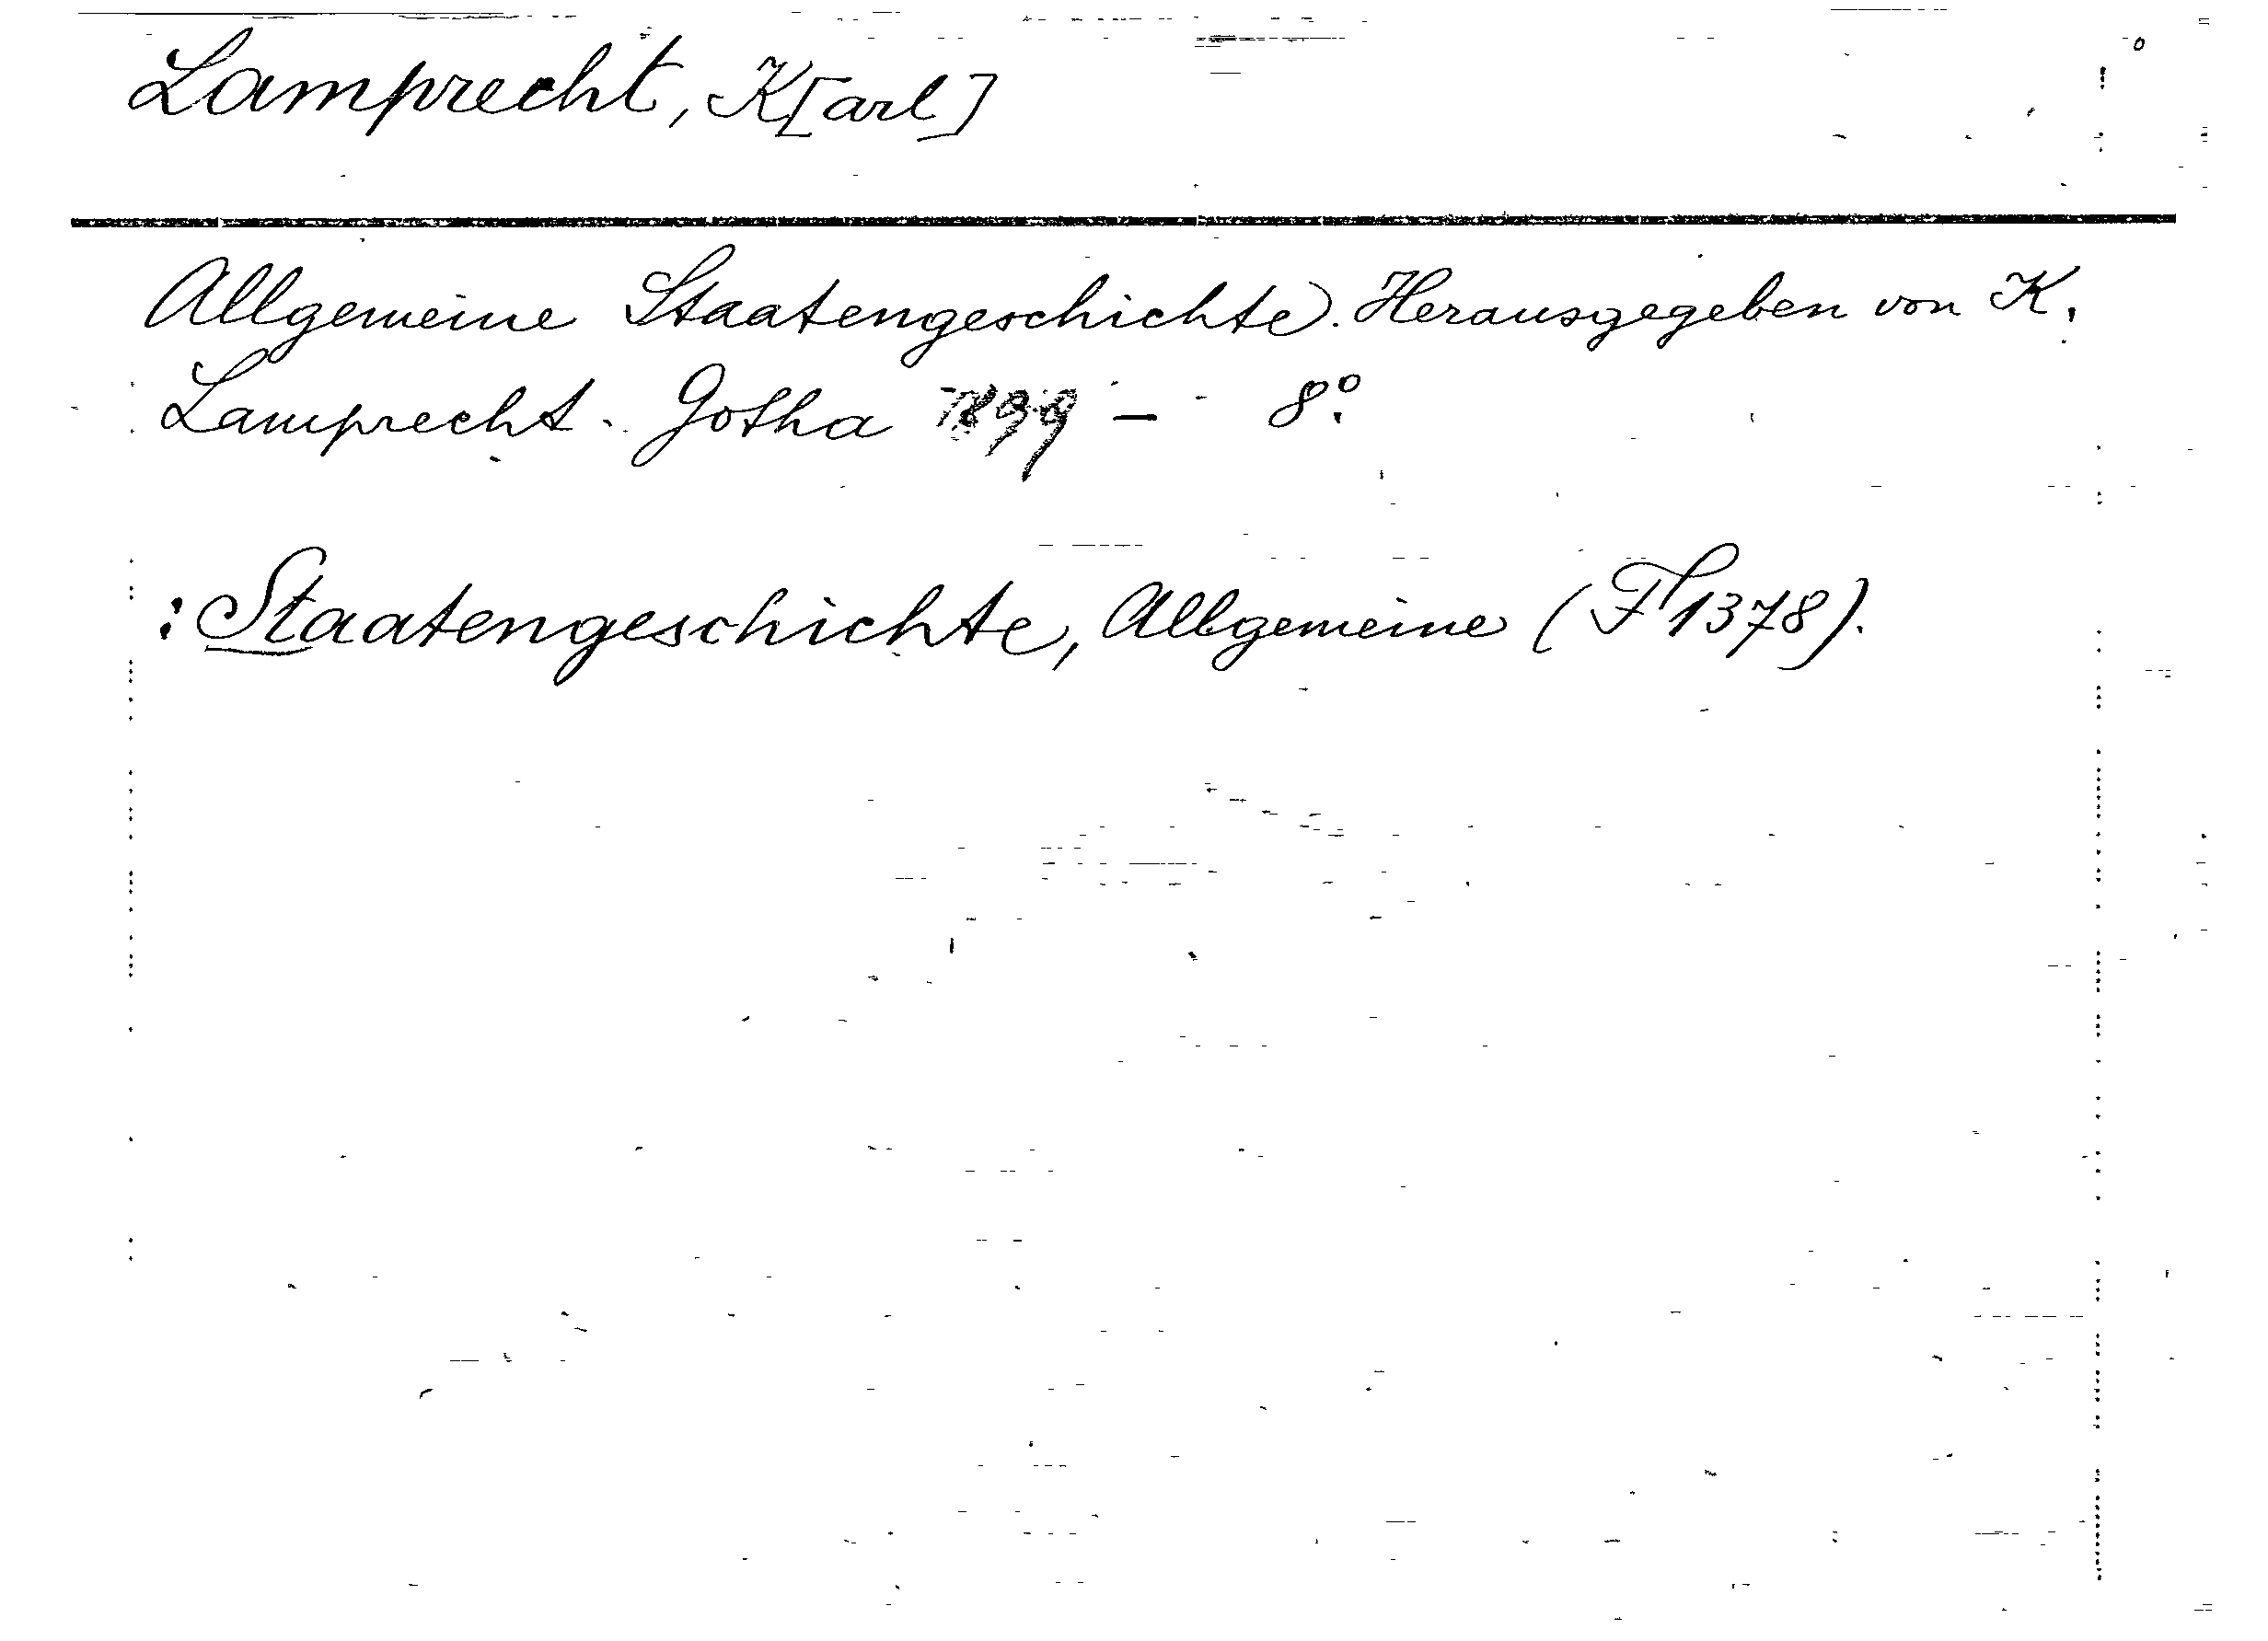 Lamprecht, K[arl]
Allgemeine Staatengeschichte. Herausgegeben von K.
Lamprecht. Gotha 1899 - 8°.
: Staatengeschichte, Allgemeine (Fl 1378).